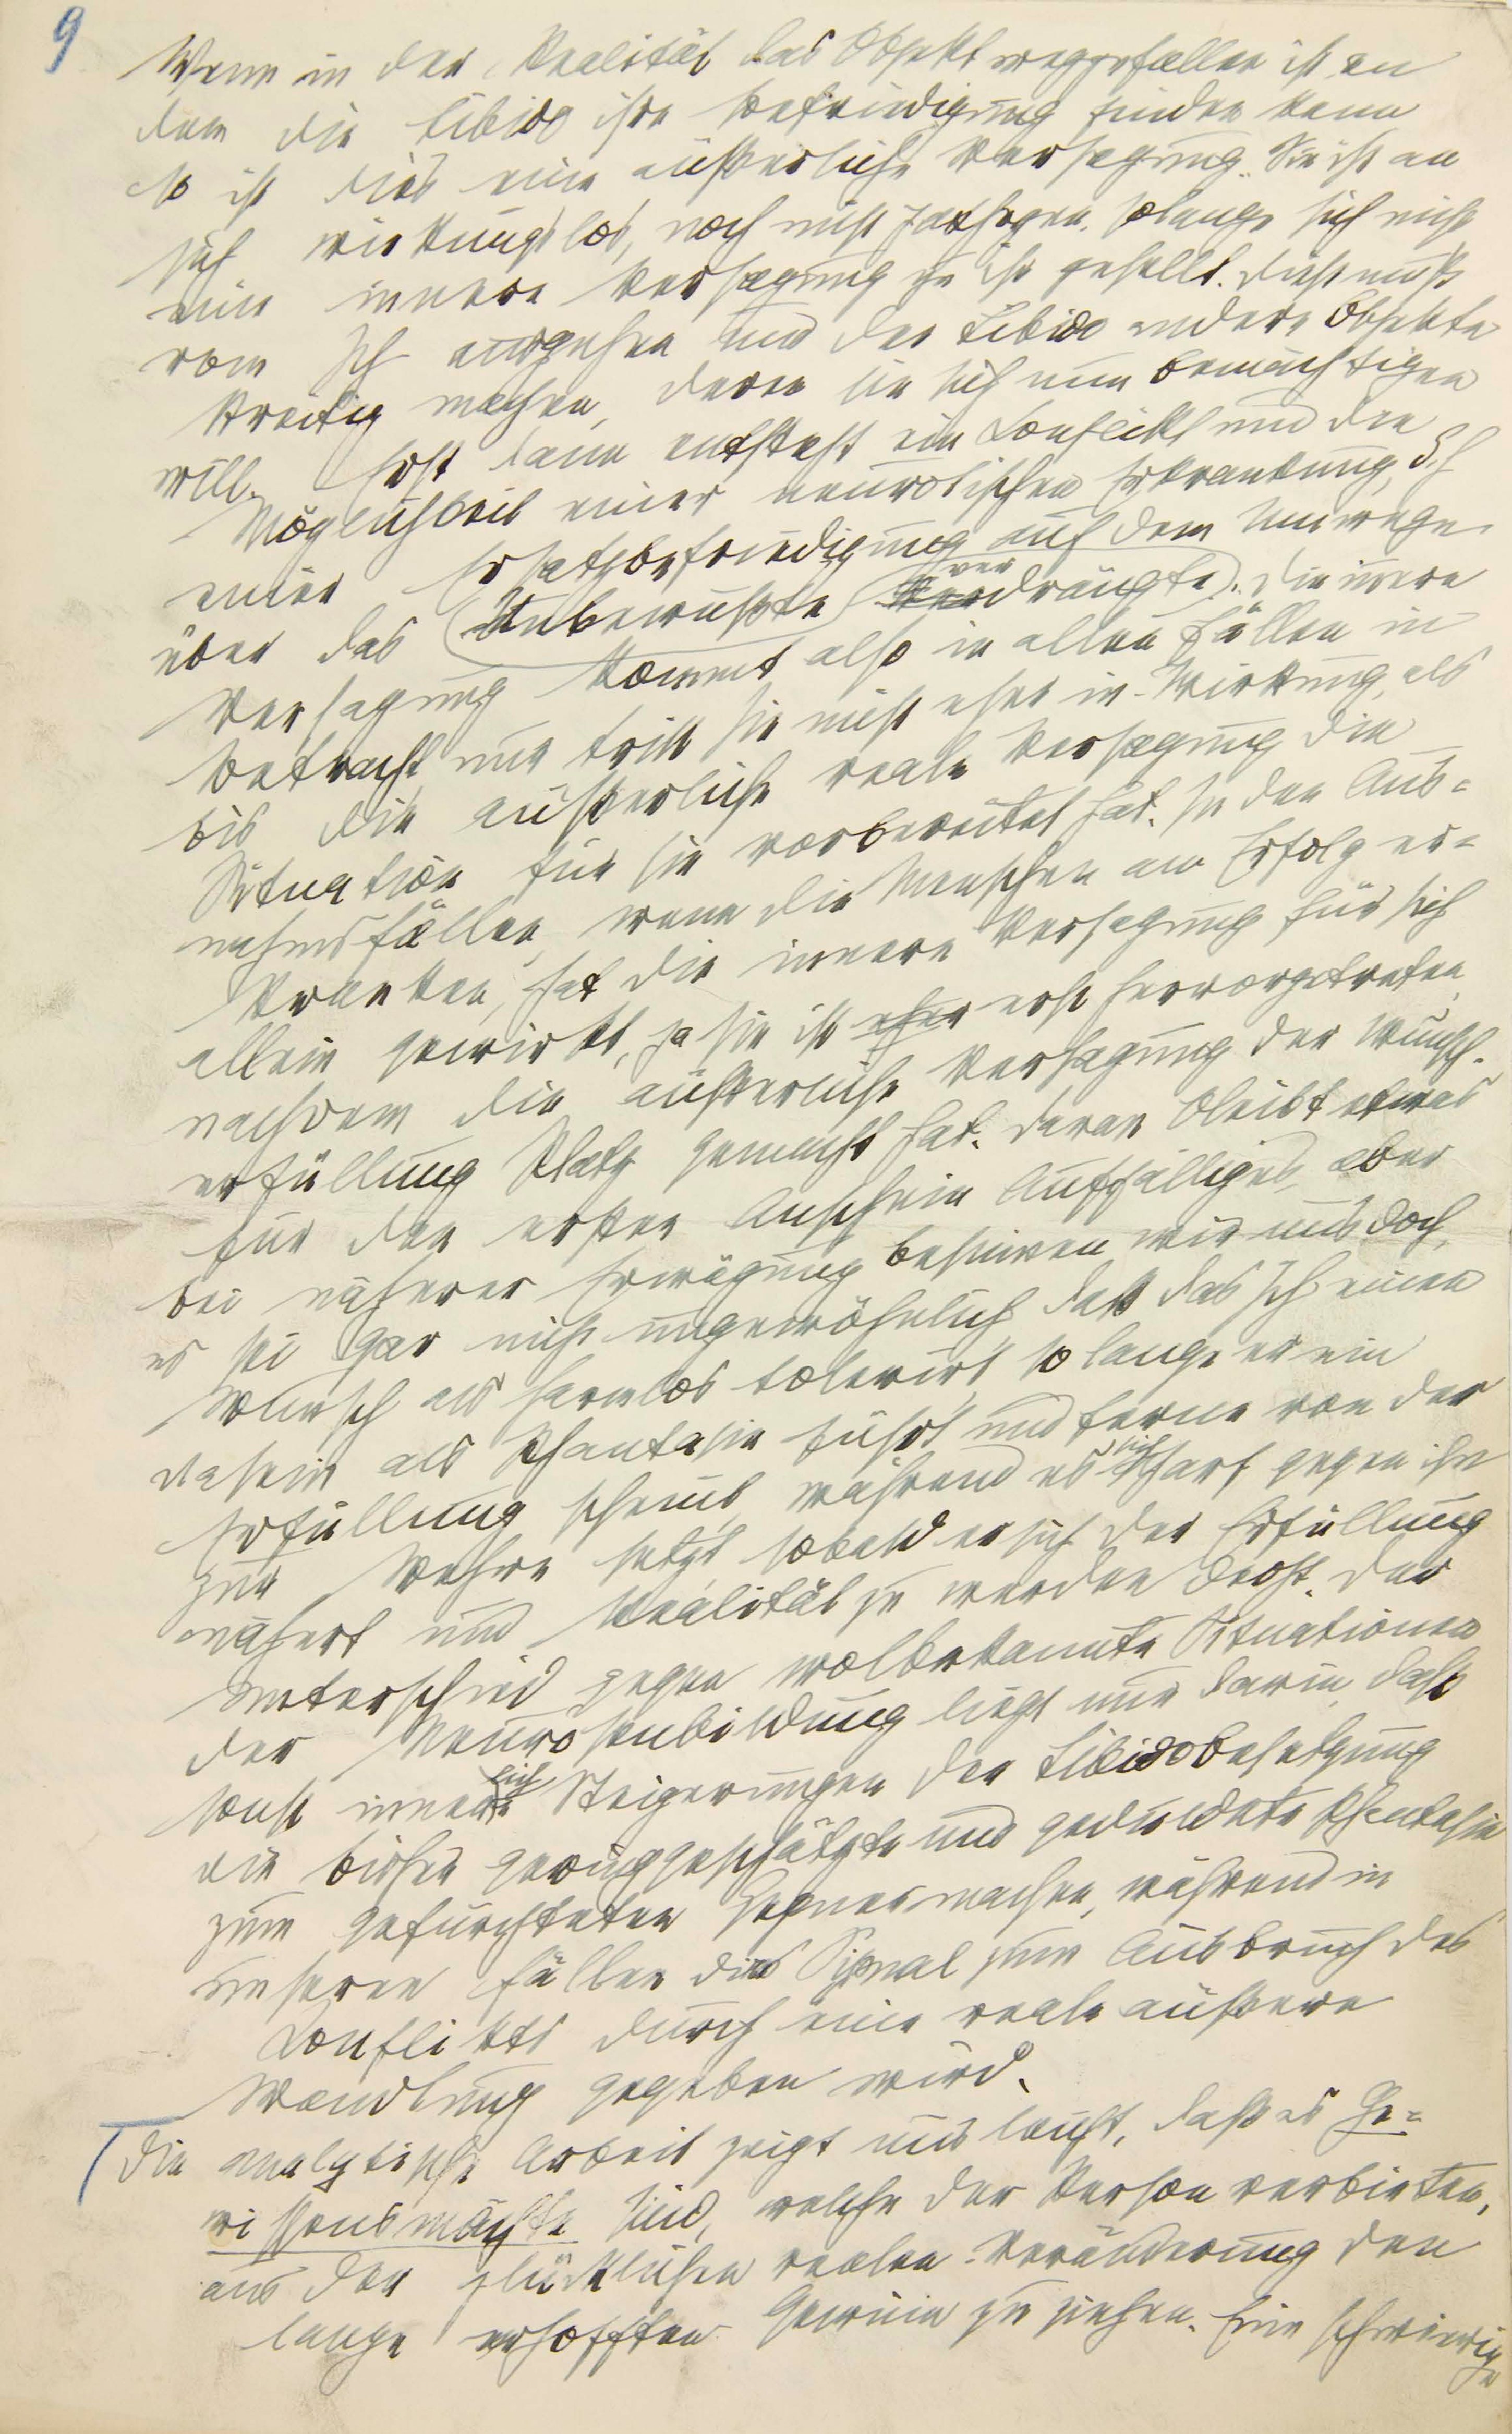 9
Wenn in der Realität das Objekt weggefallen ist, an
dem die Libido ihre Befriedigung finden kann
so ist dies eine äußerliche Versagung. Sie ist an
sich wirkungslos, noch nicht pathogen, solange sich nicht
eine innere Versagung zu ihr gesellt. Diese muß
vom Ich ausgehen und der Libido andere Objekte
streitig machen, deren sie sich nun bemächtigen
will. Erst dann entsteht ein Konflikt und die
Möglichkeit einer neurotischen Erkrankung, d.h
einer Ersatzbefriedigung auf dem Umwege
über das (Unbewußte) verdrängte. Die innere
Versagung kommt also in allen Fällen in
Betracht, nur tritt sie nicht eher in Wirkung, als
bis die äußerliche reale Versagung die
Situation für sie vorbereitet hat. In den Aus=
nahmsfällen, wenn die Menschen am Erfolg er=
kranken, hat die innere Versagung für sich
allein gewirkt, ja sie ist erst hervorgetreten,
nachdem die äußerliche Versagung der Wunsch-
erfüllung Platz gemacht hat. Daran bleibt etwas
für den ersten Anschein Auffälliges, aber
bei näherer Erwägung besinnen wir uns doch,
es sei gar nicht ungewöhnlich, daß das Ich einen
Wunsch als harmlos tolerirt, so lange er ein
Dasein als Phantasie führt und ferne von der
Erfüllung scheint, während es sich scharf gegen ihn
zur Wehre setzt, sobald er sich der Erfüllung
nähert und Realität zu werden droht. Der
Unterschied gegen wolbekannte Situationen
der Neurosenbildung liegt nur darin, daß
sonst innerliche Steigerungen der Libidobesetzung
die bisher geringgeschätzte und geduldete Phantasie
zum gefürchteten Gegner machen, während in
unseren Fällen das Signal zum Ausbruch des
Konflikts durch eine reale äußere
Wandlung gegeben wird.
Die analytische Arbeit zeigt uns leicht, daß es Ge=
wissensmächte sind, welche der Person verbieten,
aus der glücklichen realen Veränderung den
lange erhofften Gewinn zu ziehen. Eine schwierige